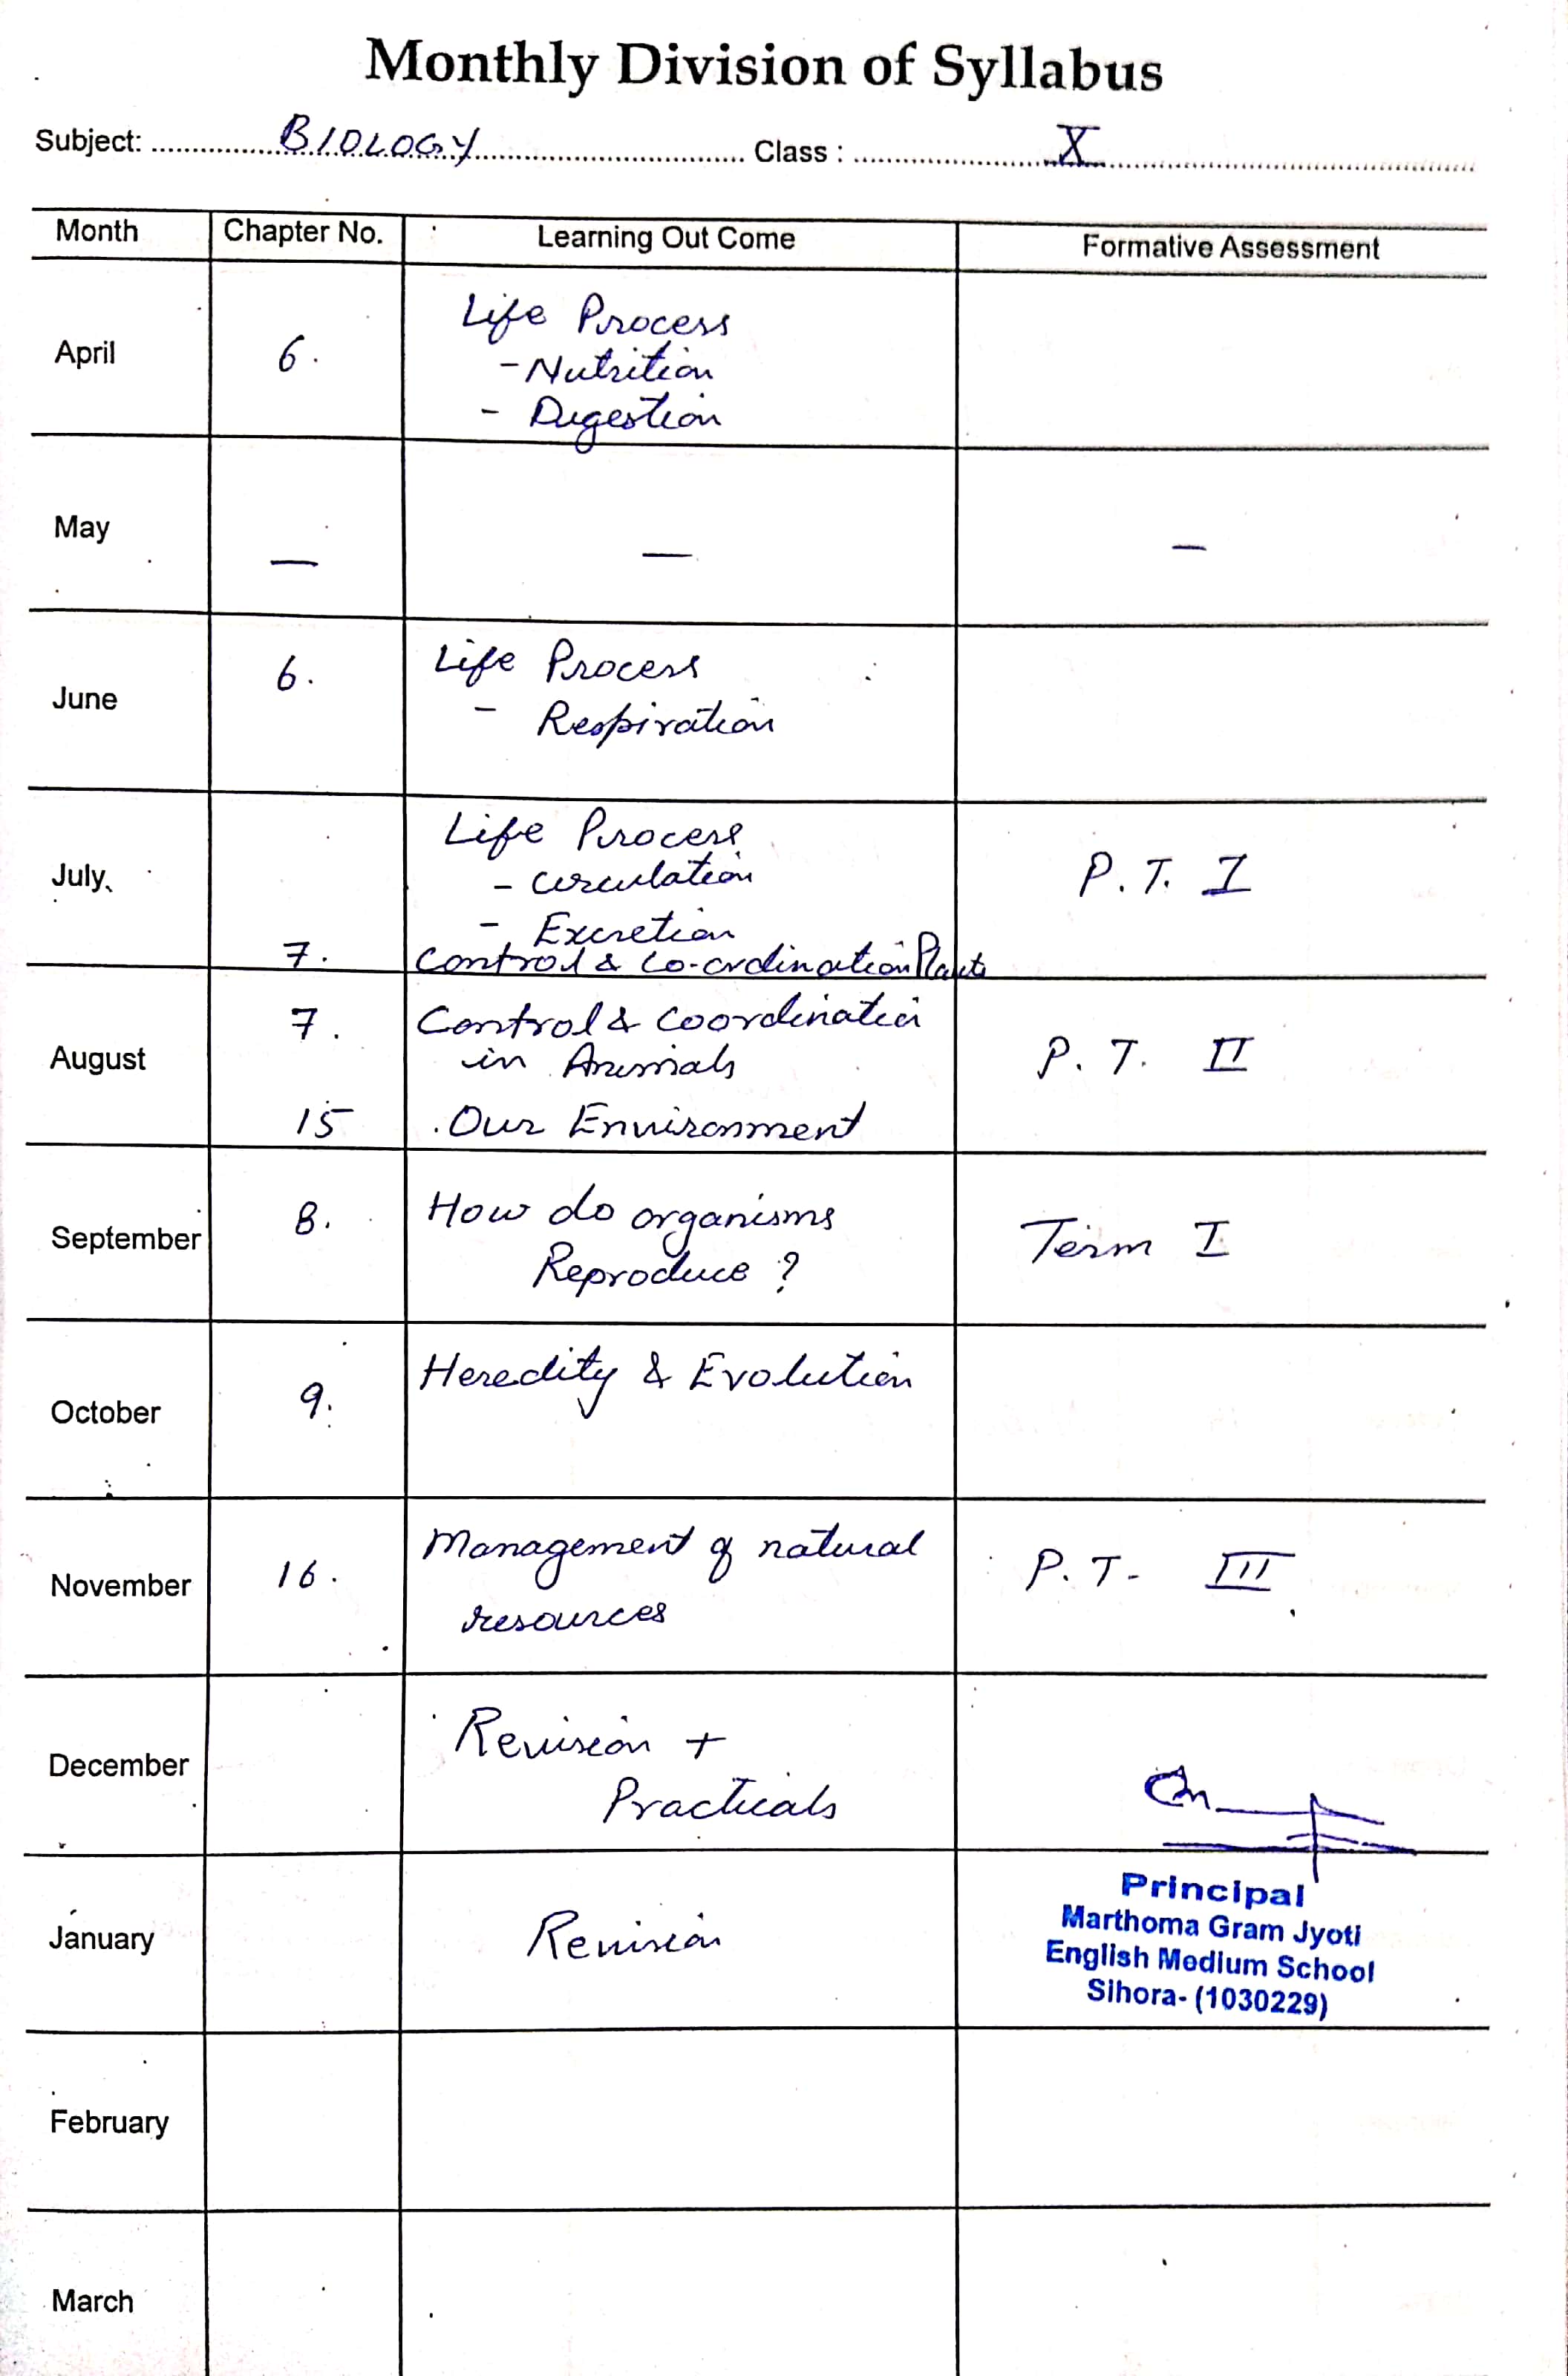 Monthly Division of Syllabus
Subject: BIOLOGY Class : X
Month Chapter No. Learning Out Come Formative Assessment
April 6. Life Process
- Nutrition
- Digestion
May — — –
June 6. Life Process
- Respiration
July Life Process P. T. I
- Circulation
- Excretion
7. Control & Co-ordination Plants
August 7. Control & Coordination P. T. II
in Animals
15 Our Environment
September 8. How do organisms Term I
Reproduce ?
October 9. Heredity & Evolution
November 16. Management of natural P. T - III
resources
December Revision +
Practicals
January Revision
Principal
Marthoma Gram Jyoti
English Medium School
Sihora- (1030229)
February
March